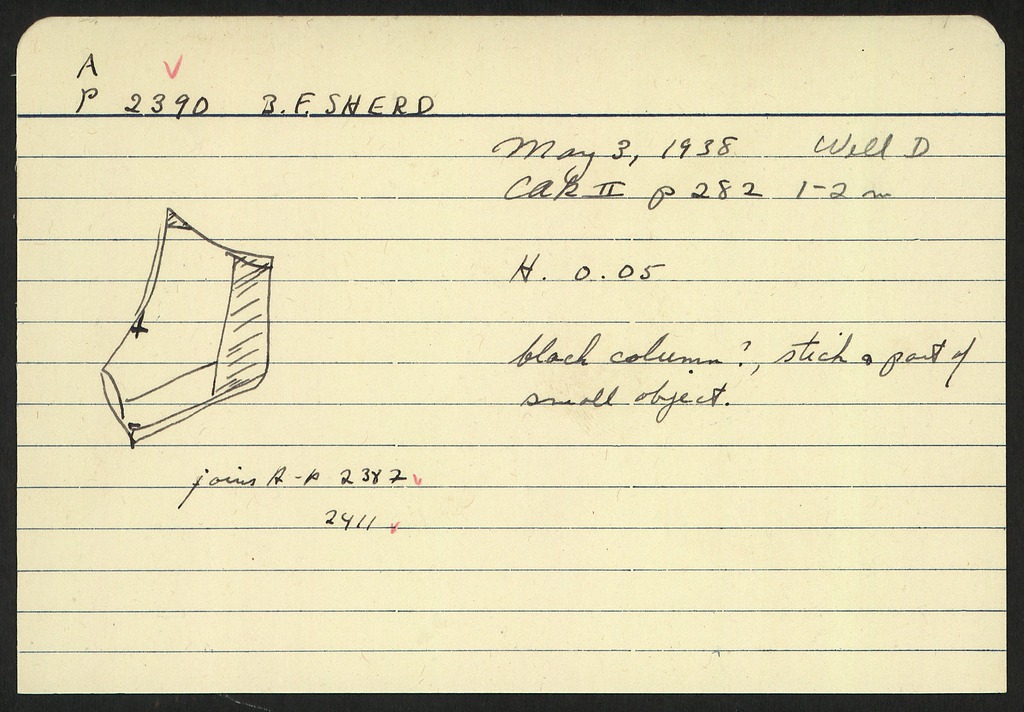 A
P 2390 B.F. SHERD
May 3, 1938 Well D
CAR II p 282 1-2 m
H. 0.05
black column?, stick & part of
small object.
joins A-P 2387
2411